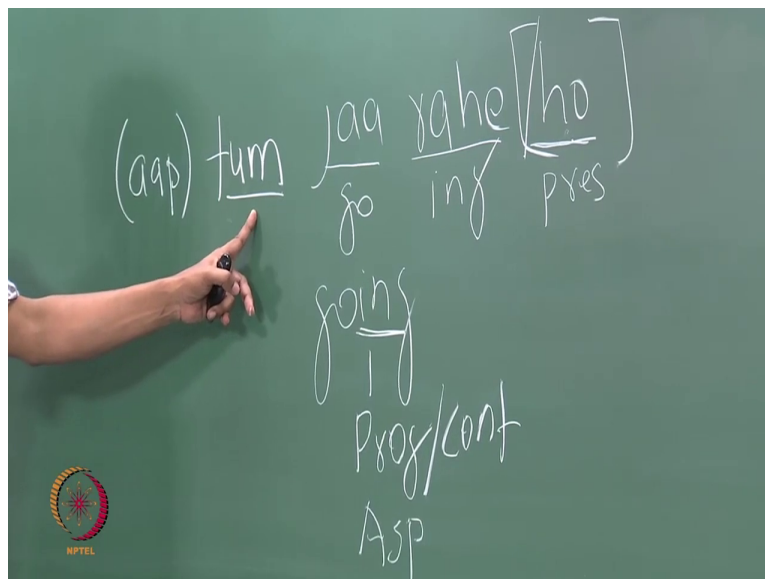 (aap) tum jaa rahe [ho]
go ing pres
going
Prog/cont
Asp
NPTEL